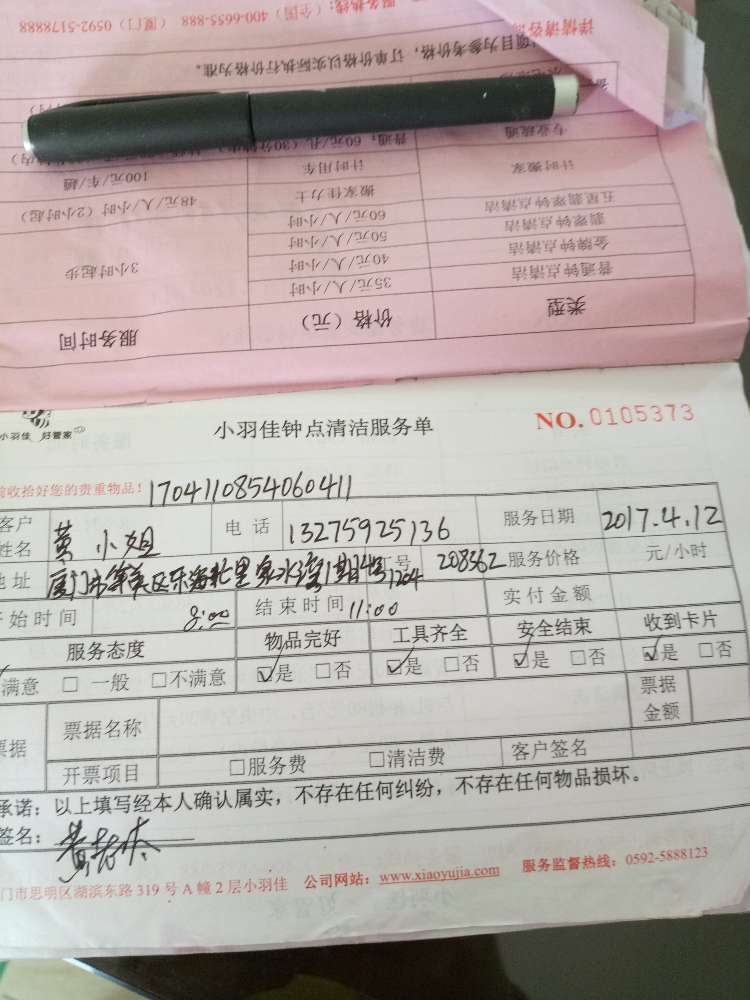 详情请咨
服务热线：（全国）400-6655-888 （厦门）0592-5178888
项目为参考价格，订单价格以实际执行价格为准。
专业疏通 普通：60元/孔（30分钟内）
计时搬家 计时用车 100元/车/趟
搬家佳力士 48元/人/小时（2小时起）
五星翡翠钟点清洁 60元/人/小时
翡翠钟点清洁 50元/人/小时
金牌钟点清洁 40元/人/小时 3小时起步
普通钟点清洁 35元/人/小时
类型 价格（元） 服务时间
小羽佳 好管家
小羽佳钟点清洁服务单
NO.0105373
前收拾好您的贵重物品！ 1704110854060411
客户姓名 黄小姐 电话 13275925136 服务日期 2017.4.12
地址 厦门市集美区乐海北里 1204 工号 208362 服务价格 元/小时
开始时间 8:00 结束时间 11:00 实付金额
服务态度 物品完好 工具齐全 安全结束 收到卡片
满意 □ 一般 □不满意 ☑是 □否 ☑是 □否 ☑是 □否 ☑是 □否
票据 票据名称 票据金额
开票项目 □服务费 □清洁费 客户签名
承诺：以上填写经本人确认属实，不存在任何纠纷，不存在任何物品损坏。
签名：
门市思明区湖滨东路 319 号 A 幢 2 层小羽佳 公司网站：www.xiaoyujia.com 服务监督热线：0592-5888123